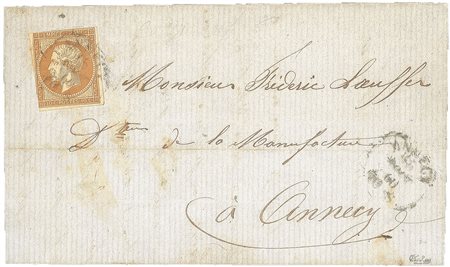 Monsieur Fréderic Lœuffer
Dteur de la Manufacture
à Annecy
ANNECY